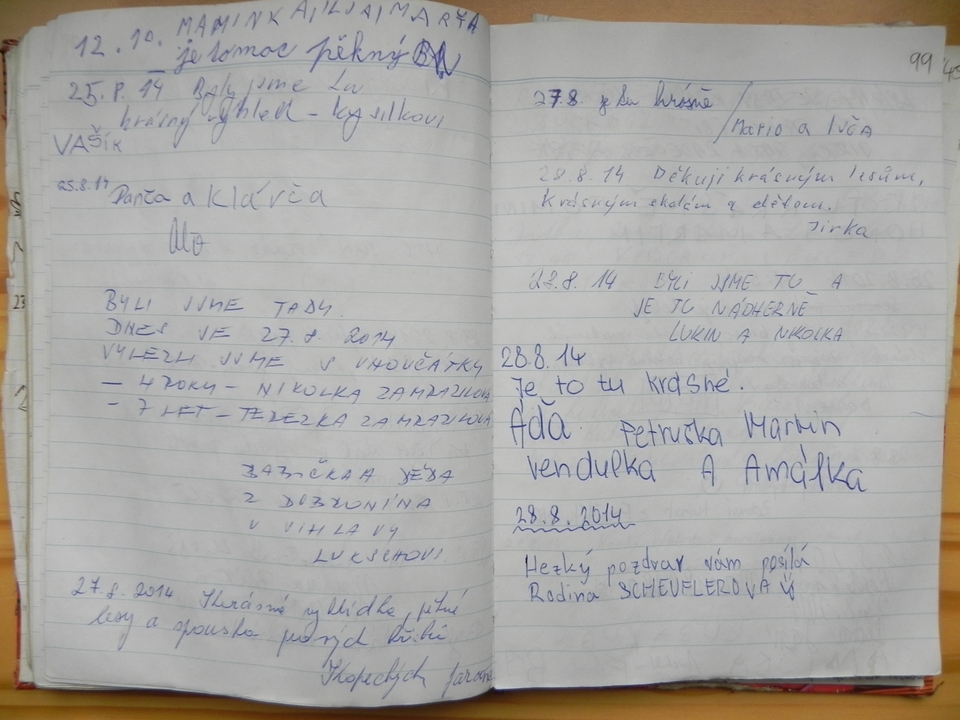 12.10. MAMINKA, ILJA, MARŤA
je tomoc pěkný
25.8.14 Byly jsme zu
krásný výhled - Kysilkovi
VAŠÍK
25.8.14 Danča a Klárča
BYLI JSME TADY
DNES VE 27.8. 2014
VYLEZLI JSME S VNOUČÁTKY
- 4 ROKY - NIKOLKA ZAMRAZILOVÁ
- 7 LET - TEREZKA ZAMRAZILOVÁ
BABIČKA A DĚDA
Z DOBRONÍNA
U JIHLAVY
LUKSCHOVI
27.8.2014 krásná vyhlídka, pěkné
lesy a spousta
Skopechých
99 '45
27.8 je tu krásně
Mario a Ivča
28.8.14 Děkuji krásným lesům,
krásným skalám a dětem.
Jirka
28.8.14 BYLI JSME TU A
JE TO NÁDHERNÉ
A NIKOLKA
28.8.14
Je to tu krásné.
Áďa Petruška Martin
Vendulka A Amálka
28.8.2014
Hezký pozdrav vám posílá
Rodina SCHEUFLEROVA